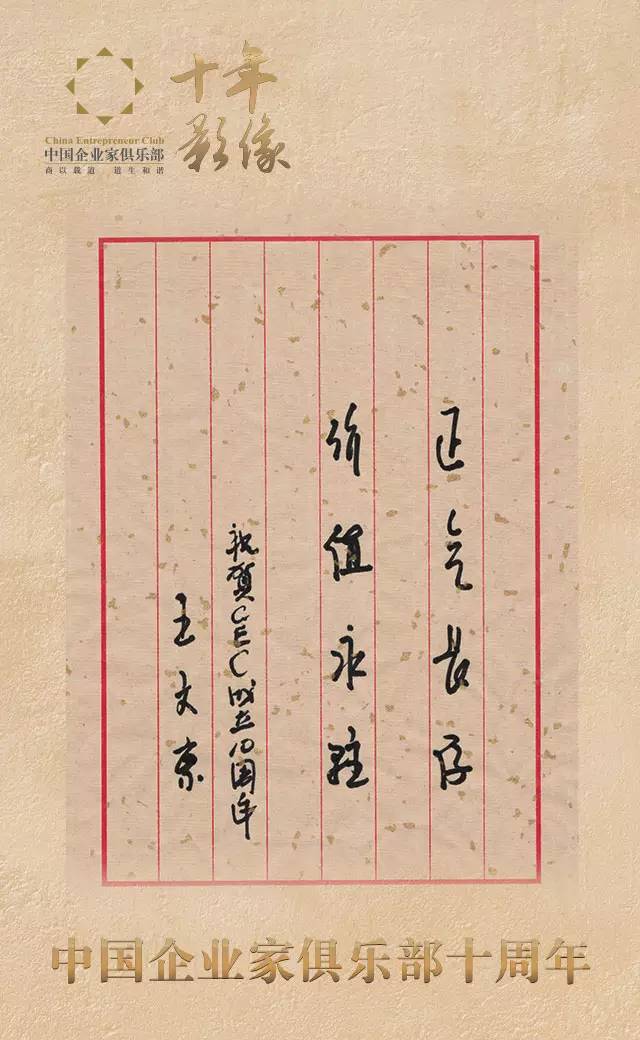 十年
影像
China Entrepreneur Club
中国企业家俱乐部
商以载道 道生和谐
正气长存
价值永驻
祝贺CEC成立10周年
王文京
中国企业家俱乐部十周年